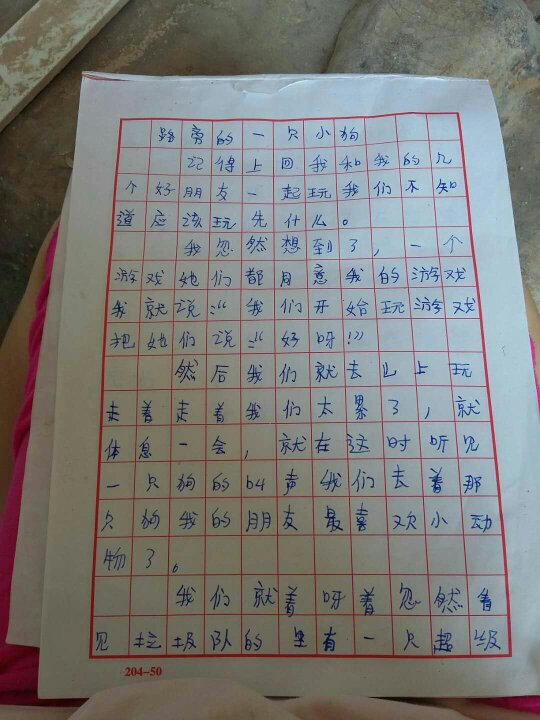 路旁的一只小狗
记得上回我和我的几
个好朋友一起玩我们不知
道应该玩先什么。
我忽然想到了，一个
游戏她们都同意我的游戏
我就说：“我们开始玩游戏
把她们说：“好呀！”
然后我们就去山上玩
走着走着我们太累了，就
体息一会，就在这时听见
一只狗的叫声我们去着那
只狗我的朋友最喜欢小动
物了。
我们就着呀着忽然看
见垃圾队的里有一只超级
204-50